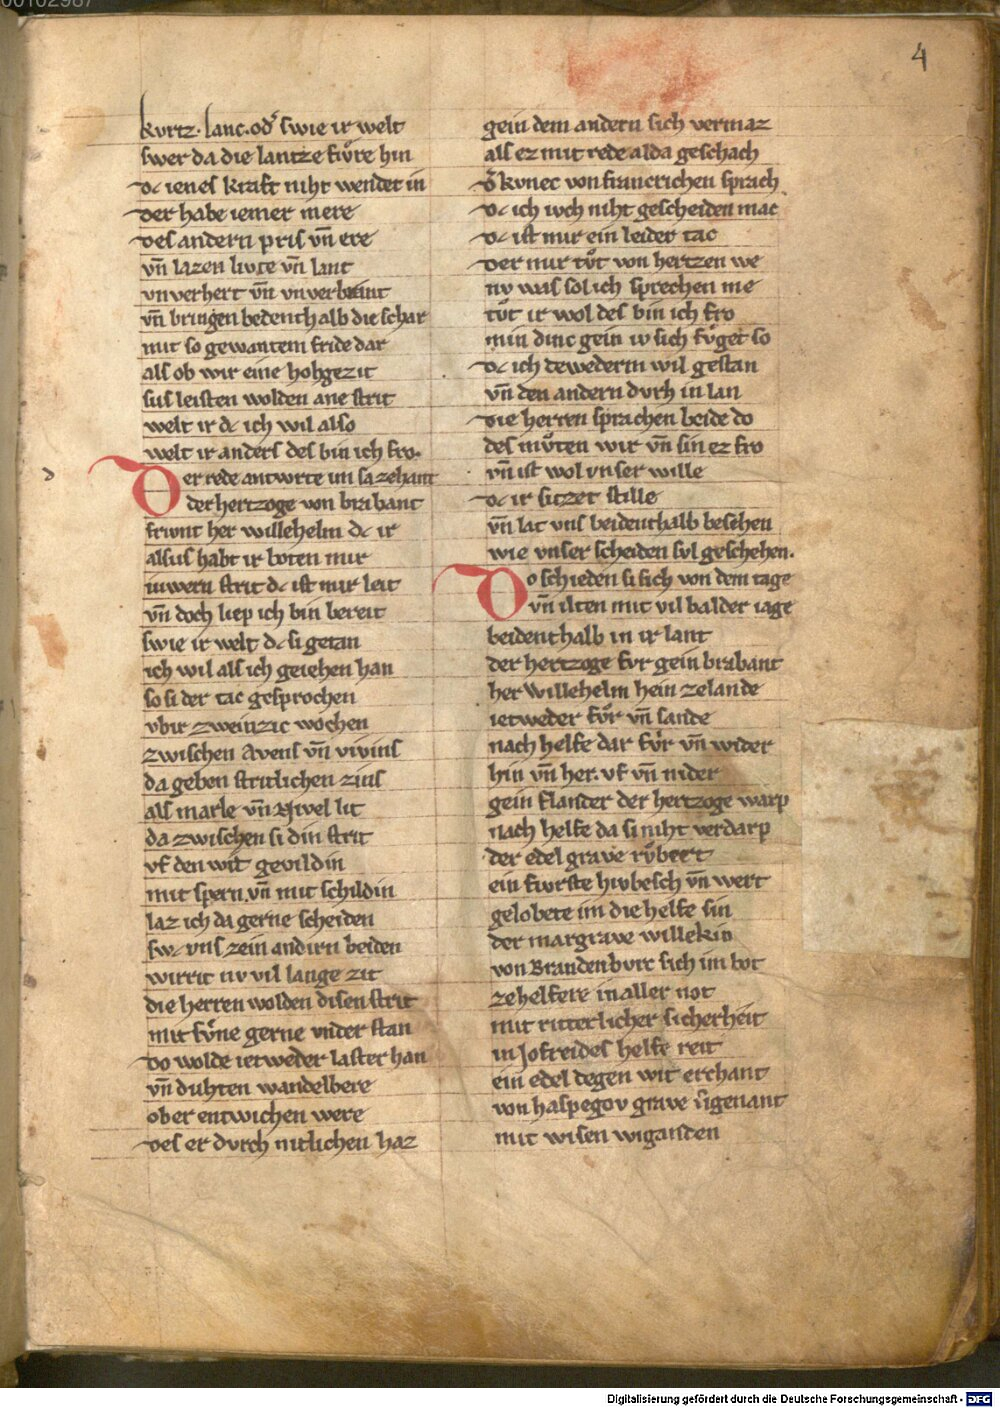 4
kvrtz. lanc. od᷎ swie ir welt
swer da die lantze fvͦre hin
dc ienes kraft niht wendet in
der habe iemer mere
des andern pris vn̄ ere
vn̄ lazen livte vn̄ lant
vnverhert vn̄ vnverbrant
vn̄ bringen bedenthalb die schar
mit so gewantem fride dar
als ob wir eine hohgezit
sus leisten wolden ane strit
welt ir dc ich wil also
welt ir anders des bin ich fro.
Der rede antwrte im sa zehant
der hertzoge von brabant
frivnt her willehelm dc ir
alsus habt ir boten mir
iuwern strit dc ist mir leit
vn̄ doch liep ich bin bereit
swie ir welt dc si getan
ich wil als ich geiehen han
so si der tac gesprochen
vbir zweinzic wochen
zwischen Avens vn̄ vivins
da geben stritlichen zins
als marle vn̄ Nivel lit
da zwischen si din strit
vf den wit gevildin
mit spern vn̄ mit schildin
laz ich da gerne scheiden
swc vns zein andirn beiden
wirrit nv vil lange zit
die herren wolden disen strit
mit svͦne gerne vnder stan
do wolde ietweder laster han
vn̄ duhten wandelbere
ober entwichen were
des er durch nitlichen haz
gein dem andern sich vermaz
als ez mit rede alda geschach
d᷎ kvnec von francrichen sprach
dc ich ivch niht gescheiden mac
dc ist mir ein leider tac
der mir tvͦt von hertzen we
nv was sol ich sprechen me
tvͦt ir wol des bin ich fro
min dinc gein iv sich fvͦget so
dc ich dewederm wil gestan
vn̄ den andern dvrh in lan
die herren sprachen beide do
des mvͦten wir vn̄ sin ez fro
vn̄ ist wol vnser wille
dc ir sitzet stille
vn̄ lat vns beidenthalb besehen
wie vnser scheiden svl geschehen.
Do schieden si sich von dem tage
vn̄ ilten mit vil balder iage
beidenthalb in ir lant
der hertzoge fvr gein brabant
her Willehelm hein zelande
ietweder fvͦr vn̄ sande
nach helfe dar fvͤr vn̄ wider
hin vn̄ her. vf vn̄ nider
gein flander der hertzoge warp
nach helfe da si niht verdarp
der edel grave rvͦbert
ein fvrste hivbesch vn̄ wert
gelobete im die helfe sin
der margrave willekin
von Brandenburc sich im bot
zehelfere in aller not
mit ritterlicher sicherheit
in Jofreides helfe reit
ein edel degen wit erchant
von haspegov grave v᷎igenant
mit wisen wiganden
Digitalisierung gefördert durch die Deutsche Forschungsgemeinschaft - DFG